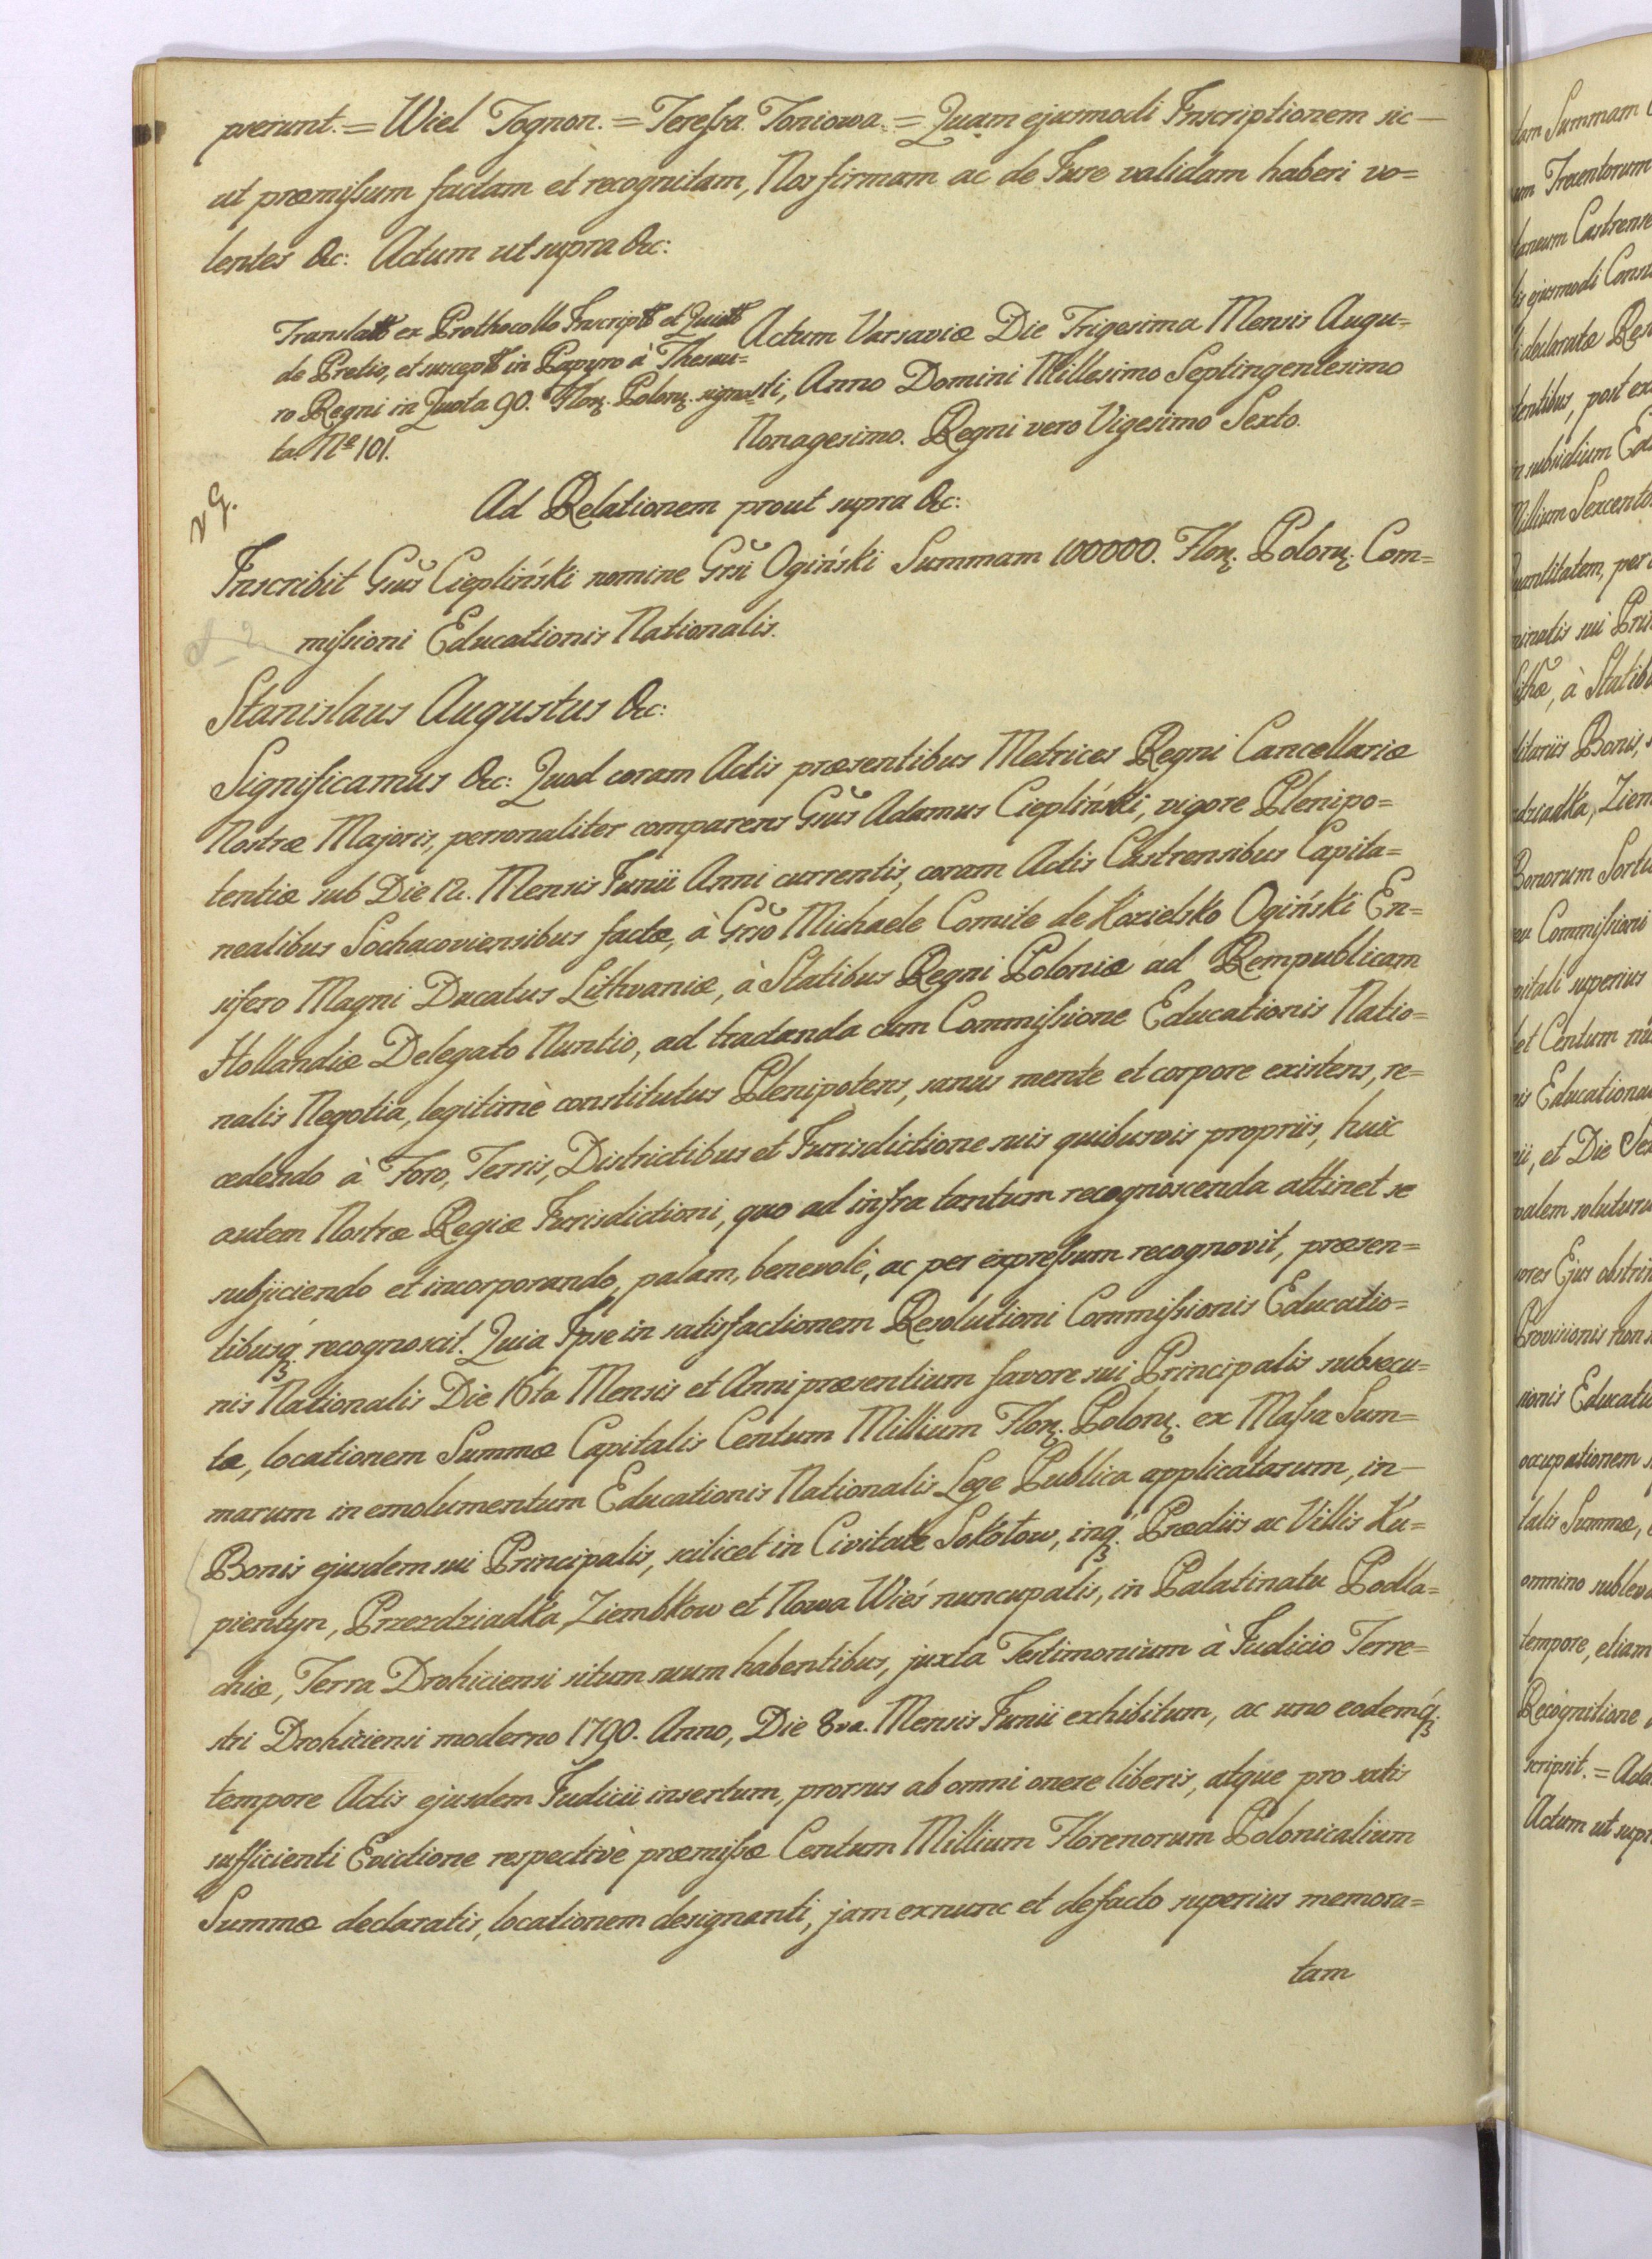 pserunt. = Wiel Tognon. = Teressa Toniowa. = Quam ejusmodi Inscriptionem sic —
ut præmissum factam et recognitam, Nos firmam ac de Jure validam haberi vo=
lentes &c: Actum ut supra &c:
Actum Varsaviæ Die Trigesima Mensis Augu=
sti, Anno Domini Millesimo Septingentesimo
Nonagesimo. Regni vero Vigesimo Sexto.
ex Prothocollo
de Pretio, et in Papyro à Thesau=
ro Regni in Quota 90. Flor. Polon. signa=
ta. No 101.
Ad Relationem prout supra &c:
Inscribit Gsus Ciepliński nomine Grsi Ogiński Summam 100000. Flor. Polon. Com=
missioni Educationis Nationalis.
Stanislaus Augustus &c:
Significamus &c: Quod coram Actis præsentibus Metrices Regni Cancellariæ
Nostræ Majoris, personaliter comparens Gsus Adamus Ciepliński, vigore Plenipo=
tentiæ sub Die 12. Mensis Junii Anni currentis, coram Actis Castrensibus Capita=
nealibus Sochacoviensibus factæ, à Grso Michaele Comite de Kozielsko Ogiński En=
sifero Magni Ducatus Lithvaniæ, à Statibus Regni Poloniæ ad Rempublicam
Hollandiæ Delegato Nuntio, ad tractanda cum Commissione Educationis Natio=
nalis Negotia, legitimè constitutus Plenipotens, sanus mente et corpore existens, re=
cedendo à Foro, Terris, Districtibus et Jurisdictione suis quibusvis propriis, huic
autem Nostræ Regiæ Jurisdictioni, quo ad infra tantum recognoscenda attinet se
subjiciendo et incorporando, palam, benevolè, ac per expressum recognovit, præsen=
tibusq. recognoscit. Quia Ipse in satisfactionem Resolutioni Commissionis Educatio=
nis Nationalis Die 16ta Mensis et Anni præsentium favore sui Principalis subsecu=
tæ, locationem Summæ Capitalis Centum Millium Flor. Polon. ex Massa Sum=
marum in emolumentum Educationis Nationalis Lege Publica applicatarum, in —
Bonis ejusdem sui Principalis, scilicet in Civitate Sokołow, inq. Prædiis ac Villis Ku=
pientyn, Przezdziadka, Ziembkow et Nowa Wieś nuncupatis, in Palatinatu Podla=
chiæ, Terra Drohiciensi situm suum habentibus, juxta Testimonium à Judicio Terre=
stri Drohiciensi moderno 1790. Anno, Die 8va. Mensis Junii exhibitum, ac uno eodemq.
tempore Actis ejusdem Judicii insertum, prorsus ab omni onere liberis, atque pro satis
sufficienti Evictione respectivè præmissæ Centum Millium Florenorum Polonicalium
Summæ declaratis, locationem designanti, jam exnunc et defacto superius memora=
tam